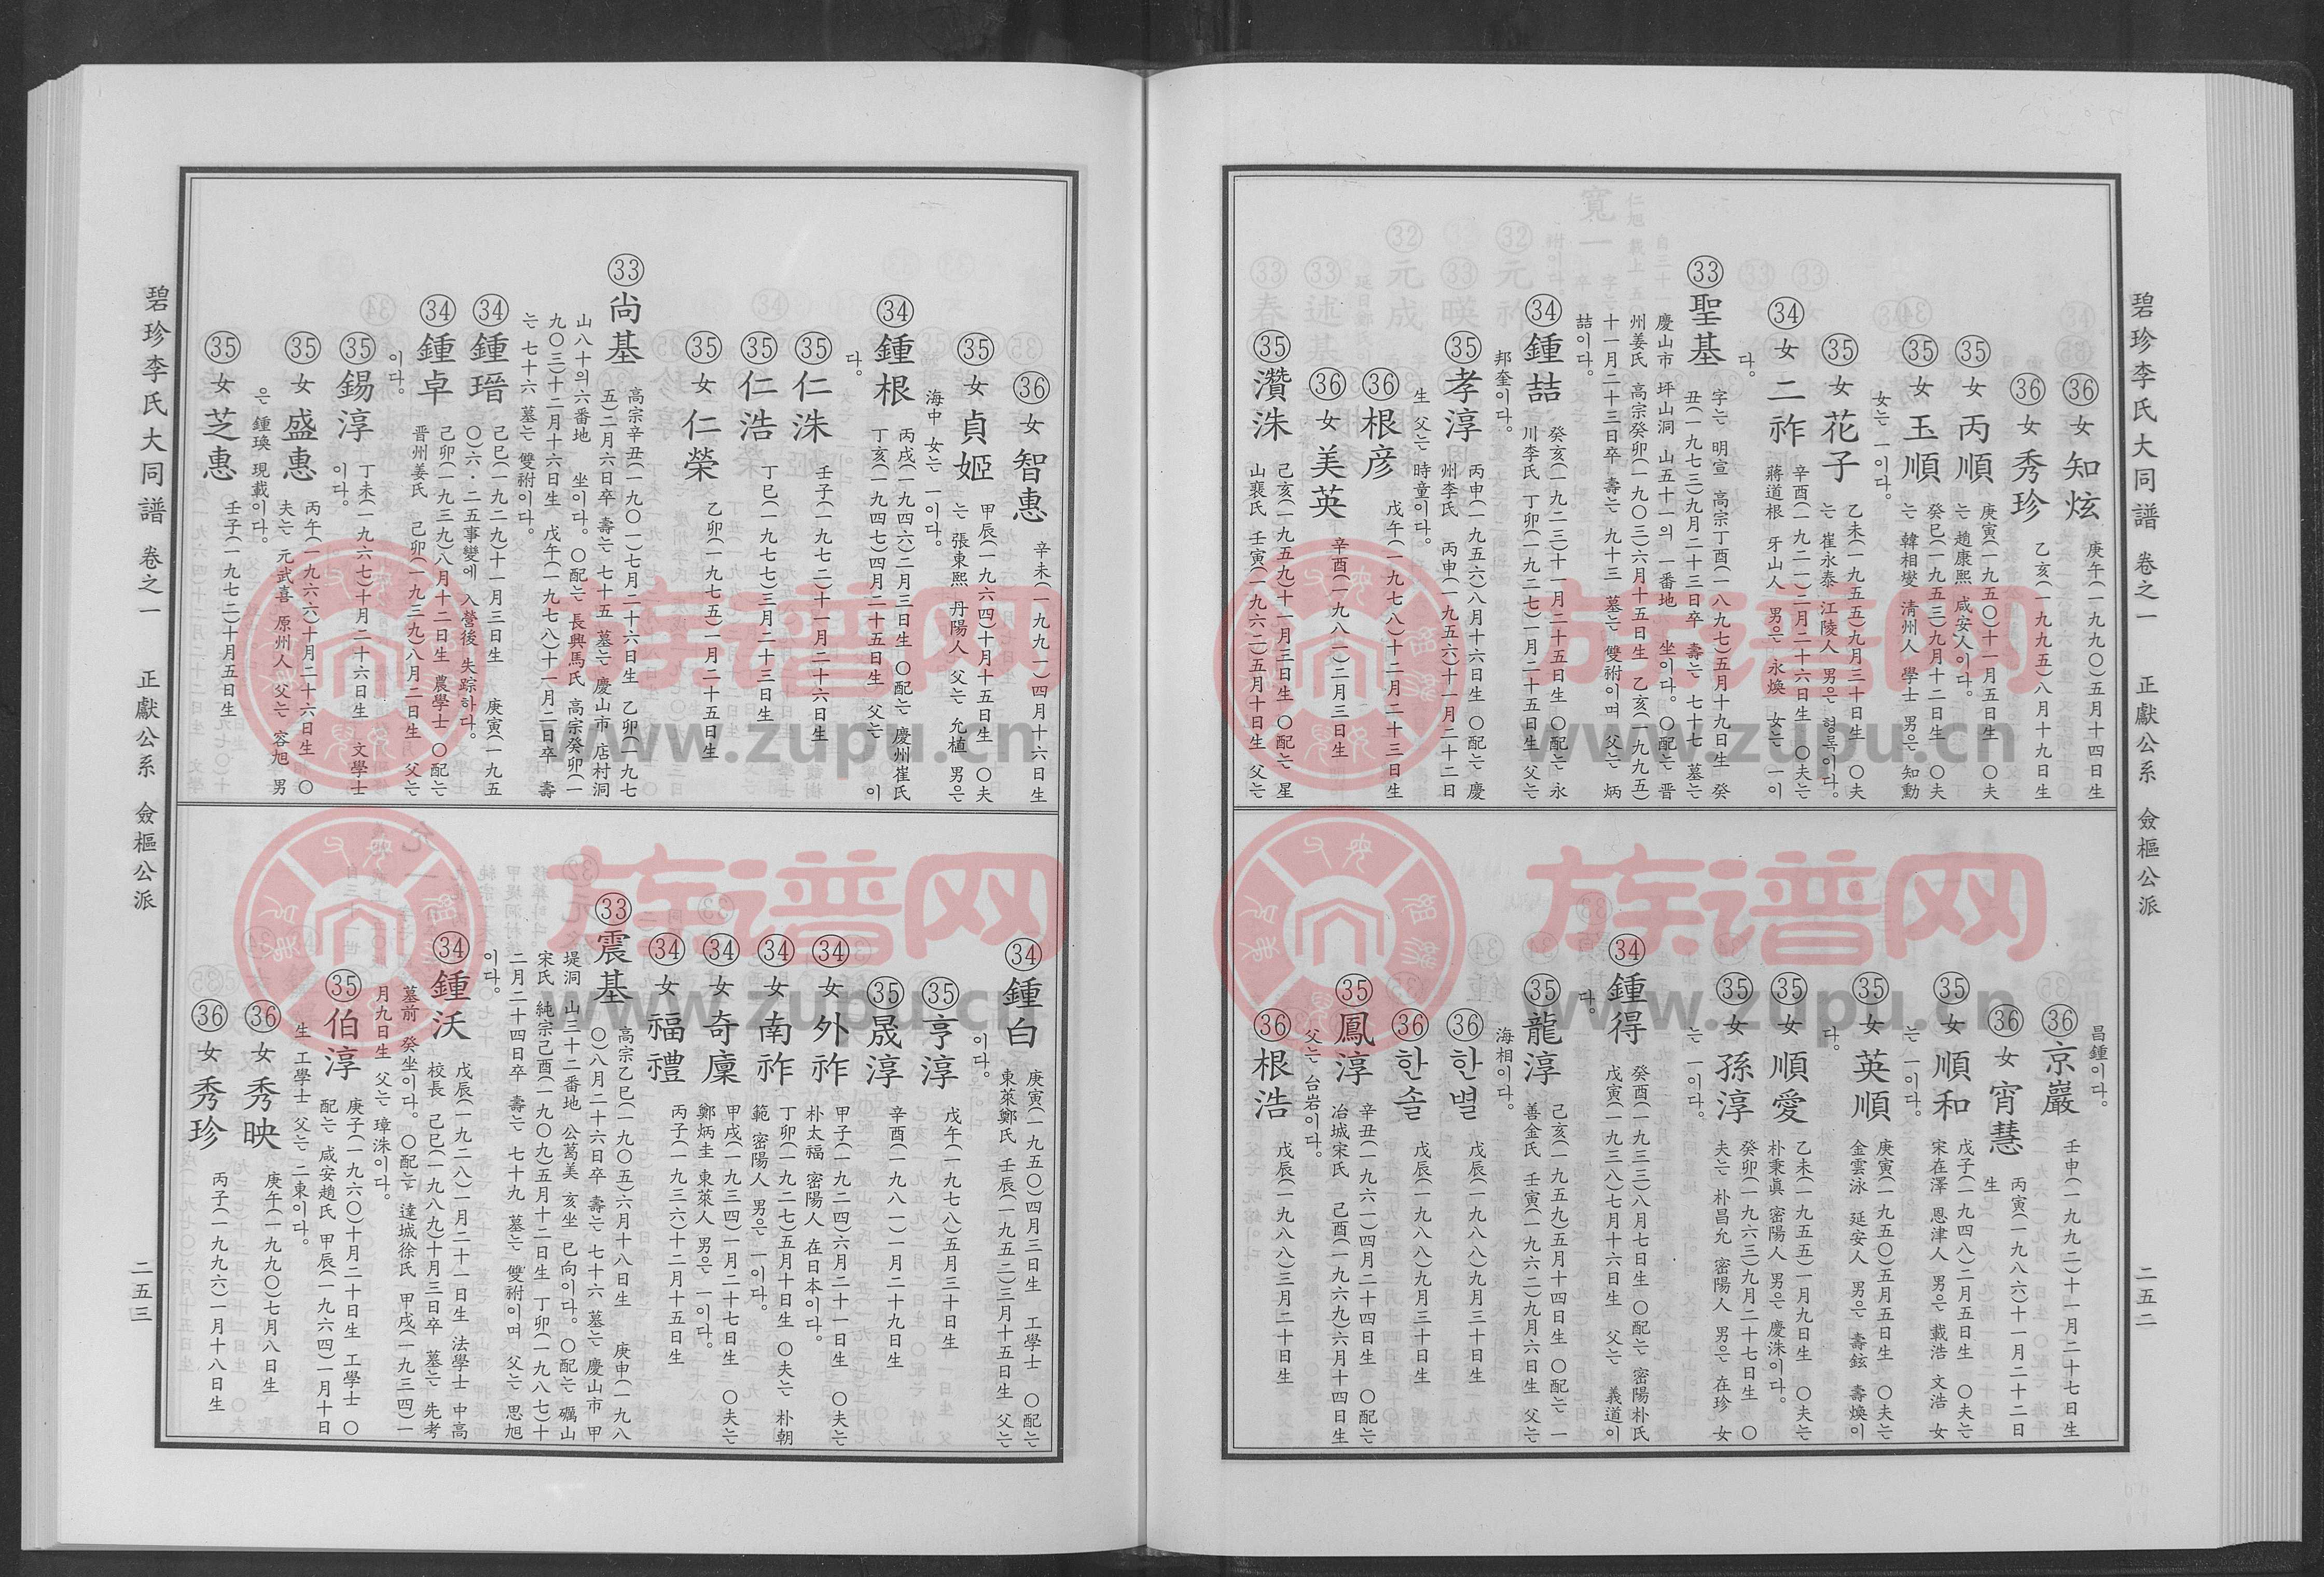 碧珍李氏大同譜 卷之一 正獻公系 僉樞公派 二五二
㊱女知炫 庚午(一九九〇)五月十四日生
㊱女秀珍 乙亥(一九九五)八月十九日生
㉟女丙順 庚寅(一九五〇)十一月五日生 〇夫
는 趙康熙 咸安人이다。
㉟女玉順 癸巳(一九五三)九月十二日生 〇夫
는 韓相燮 淸州人 學士 男은 知勳
女는 一이다。
㉟女花子 乙未(一九五五)九月三十日生 〇夫
는 崔永泰 江陵人 男은 형록이다。
㉞女二祚 辛酉(一九二一)二月二十六日生 〇夫는
蔣道根 牙山人 男은 永煥 女는 一이
다。
㉝聖基 字는 明宣 高宗丁酉(一八九七)五月十九日生 癸
丑(一九七三)九月二十三日卒 壽는 七十七 墓는
慶山市 坪山洞 山五十一의 一番地 坐이다。〇配는 晋
州姜氏 高宗癸卯(一九〇三)六月十五日生 乙亥(一九九五)
十一月二十三日卒 壽는 九十三 墓는 雙祔이며 父는 炳
喆이다。
㉞鍾喆 癸亥(一九二三)十一月二十五日生 〇配는 永
川李氏 丁卯(一九二七)一月二十五日生 父는
邦奎이다。
㉟孝淳 丙申(一九五六)八月十六日生 〇配는 慶
州李氏 丙申(一九五六)十一月二十二日
生 父는 時童이다。
㊱根彦 戊午(一九七八)十二月二十三日生
㊱女美英 辛酉(一九八一)二月三日生
㉟瓚洙 己亥(一九五九)十一月三日生 〇配는 星
山裵氏 壬寅(一九六二)五月十日生 父는
昌鍾이다。
㊱京巖 壬申(一九九二)十一月二十七日生
㊱女宵慧 丙寅(一九八六)十一月二十二日
生
㉟女順和 戊子(一九四八)二月五日生 〇夫는
宋在澤 恩津人 男은 載浩 文浩 女
는 一이다。
㉟女英順 庚寅(一九五〇)五月五日生 〇夫는
金雲泳 延安人 男은 壽鉉 壽煥이
다。
㉟女順愛 乙未(一九五五)一月九日生 〇夫는
朴秉眞 密陽人 男은 慶洙이다。
㉟女孫淳 癸卯(一九六三)九月二十七日生 〇
夫는 朴昌允 密陽人 男은 在珍 女
는 一이다。
㉞鍾得 癸酉(一九三三)八月七日生 〇配는 密陽朴氏
戊寅(一九三八)七月十六日生 父는 義道이
다。
㉟龍淳 己亥(一九五九)五月十四日生 〇配는 一
善金氏 壬寅(一九六二)九月六日生 父는
海相이다。
㊱한별 戊辰(一九八八)九月三十日生
㊱한솔 戊辰(一九八八)九月三十日生
㉟鳳淳 辛丑(一九六一)四月二十四日生 〇配는
冶城宋氏 己酉(一九六九)六月十四日生
父는 台岩이다。
㊱根浩 戊辰(一九八八)三月二十日生
㊱女智惠 辛未(一九九一)四月十六日生
㉟女貞姬 甲辰(一九六四)十月十五日生 〇夫
는 張東熙 丹陽人 父는 允植 男은
海中 女는 一이다。
㉞鍾根 丙戌(一九四六)二月三日生 〇配는 慶州崔氏
丁亥(一九四七)四月二十五日生 父는 이
다。
㉟仁洙 壬子(一九七二)十一月二十六日生
㉟仁浩 丁巳(一九七七)三月二十三日生
㉟女仁榮 乙卯(一九七五)一月二十五日生
㉝尙基 高宗辛丑(一九〇一)七月二十六日生 乙卯(一九七
五)二月六日卒 壽는 七十五 墓는 慶山市 店村洞
山八十의 六番地 坐이다。〇配는 長興馬氏 高宗癸卯(一
九〇三)十二月十六日生 戊午(一九七八)十一月二日卒 壽
는 七十六 墓는 雙祔이다。
㉞鍾瑨 己巳(一九二九)十一月三日生 庚寅(一九五
〇)六·二五事變에 入營後 失踪하다。
㉞鍾卓 己卯(一九三九)八月十二日生 農學士 〇配는
晋州姜氏 己卯(一九三九)八月二日生 父는
이다。
㉟錫淳 丁未(一九六七)十月二十六日生 文學士
이다。
㉟女盛惠 丙午(一九六六)十月二十六日生 〇
夫는 元武喜 原州人 父는 容旭 男
은 鍾瑛 現載이다。
㉟女芝惠 壬子(一九七二)十月五日生
㉞鍾白 庚寅(一九五〇)四月三日生 工學士 〇配는
東萊鄭氏 壬辰(一九五二)三月十五日生 父는
이다。
㉟亨淳 戊午(一九七八)五月三十日生
㉟晟淳 辛酉(一九八一)一月二十九日生
㉞女外祚 甲子(一九二四)六月二十一日生 〇夫는
朴太福 密陽人 在日本이다。
㉞女南祚 丁卯(一九二七)五月十日生 〇夫는 朴朝
範 密陽人 男은 一이다。
㉞女奇廩 甲戌(一九三四)一月二十七日生 〇夫는
鄭炳圭 東萊人 男은 一이다。
㉞女福禮 丙子(一九三六)十二月十五日生
㉝震基 高宗乙巳(一九〇五)六月十八日生 庚申(一九八
〇)八月二十六日卒 壽는 七十六 墓는 慶山市 甲
堤洞 山三十二番地 公葛美 亥坐 巳向이다。〇配는 礪山
宋氏 純宗己酉(一九〇九)五月十二日生 丁卯(一九八七)十
二月二十四日卒 壽는 七十九 墓는 雙祔이며 父는 思旭
이다。
㉞鍾沃 戊辰(一九二八)一月二十一日生 法學士 中高
校長 己巳(一九八九)十月三日卒 墓는 先考
墓前 癸坐이다。〇配는 達城徐氏 甲戌(一九三四)一
月九日生 父는 璋洙이다。
㉟伯淳 庚子(一九六〇)十月二十日生 工學士 〇
配는 咸安趙氏 甲辰(一九六四)一月十日
生 工學士 父는 二東이다。
㊱女秀映 庚午(一九九〇)七月八日生
㊱女秀珍 丙子(一九九六)一月十八日生
碧珍李氏大同譜 卷之一 正獻公系 僉樞公派 二五三
族谱网
www.zupu.cn
族谱网
www.zupu.cn
族谱网
www.zupu.cn
族谱网
www.zupu.cn